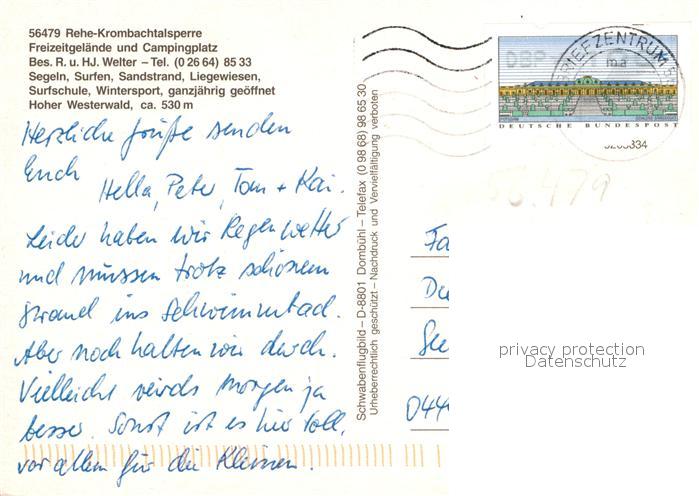 56479 Rehe-Krombachtalsperre
Freizeitgelände und Campingplatz
Bes. R. u. HJ. Welter – Tel. (0 26 64) 85 33
Segeln, Surfen, Sandstrand, Liegewiesen,
Surfschule, Wintersport, ganzjährig geöffnet
Hoher Westerwald, ca. 530 m
Herzliche Grüße senden
Euch
Hella, Peter, Tom + Kai.
Leider haben wir Regenwetter
und müssen trotz schönem
Strand ins Schwimmbad.
Aber noch halten wir durch.
Vielleicht wirds morgen ja
besser. Sonst ist es hier toll,
vor allem für die Kleinen.
Schwabenflugbild – D-8801 Dombühl – Telefax (0 98 68) 98 65 30
Urheberrechtlich geschützt – Nachdruck und Vervielfältigung verboten
DBP
BRIEFZENTRUM 5
ma
DEUTSCHE BUNDESPOST
334
56.479
Fa
Du
See
044
privacy protection
Datenschutz